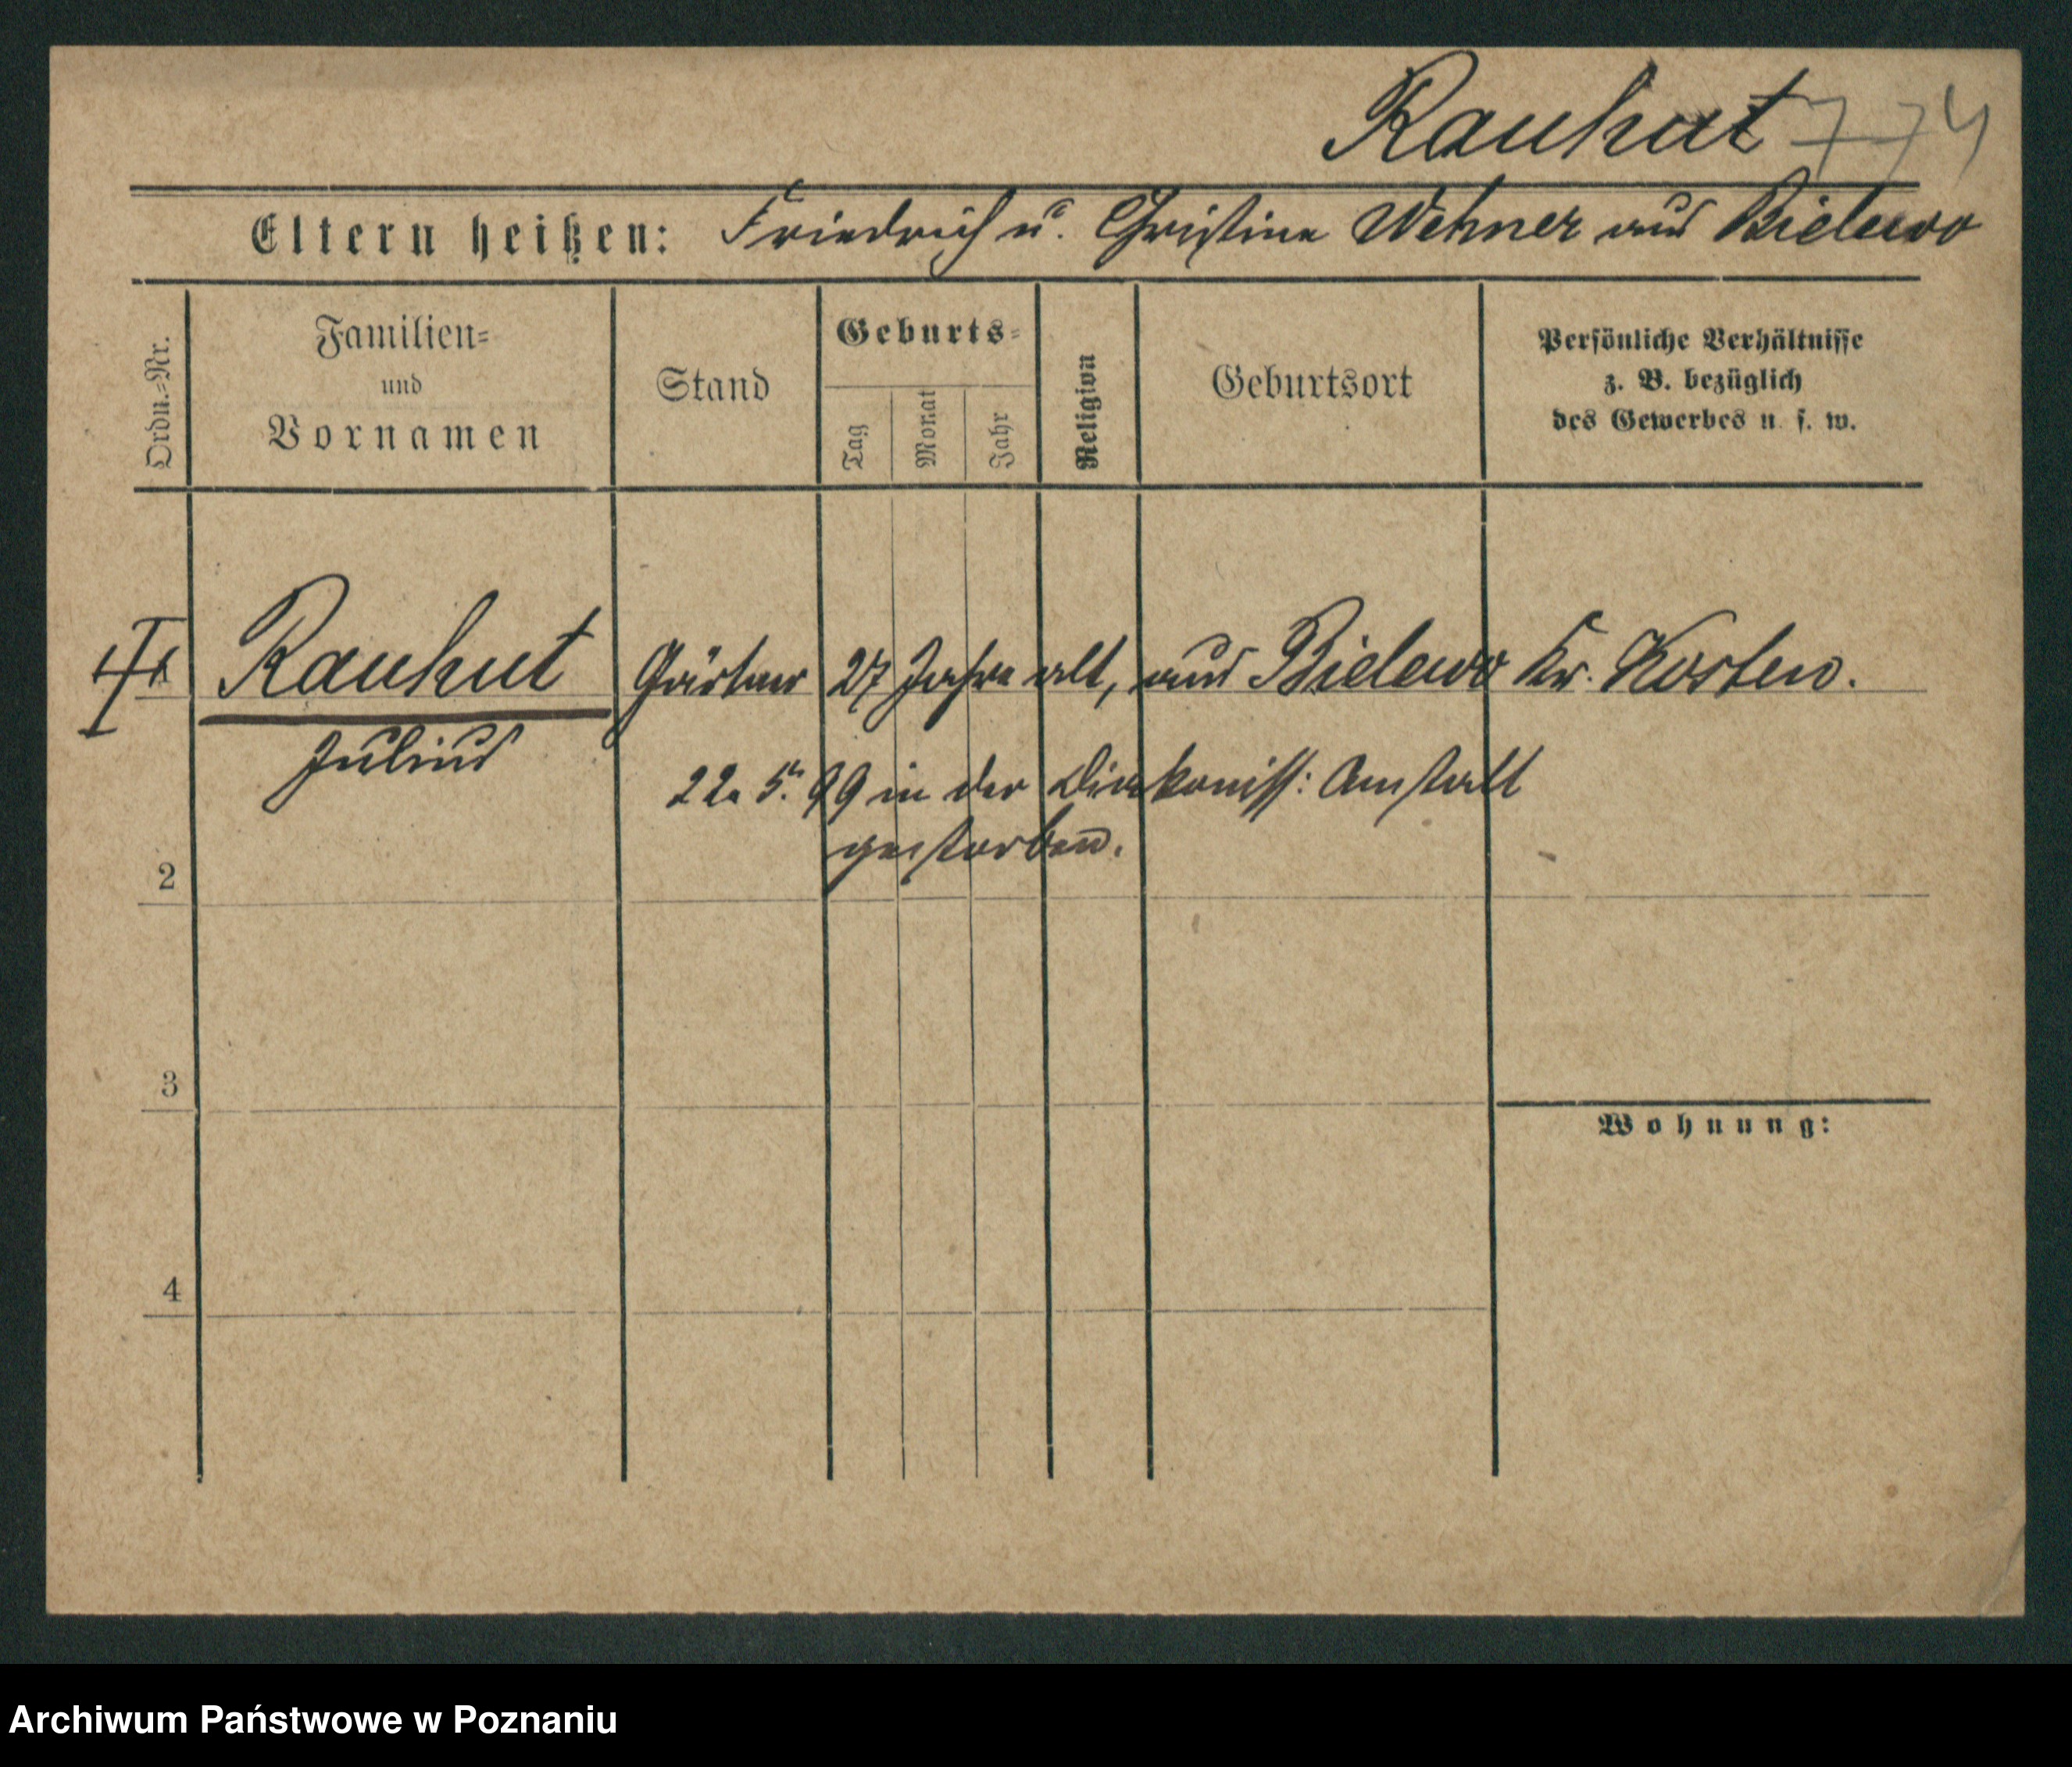 Rauhut 774
Eltern heißen: Friedrich u. Christine Wehner aus Bielewo
Ordn.-Nr.
Familien-
und
Vornamen
Stand
Geburts-
Tag
Monat
Jahr
Religion
Geburtsort
Persönliche Verhältnisse
z. B. bezüglich
des Gewerbes u. s. w.
Rauhut Gärtner 27 Jahre alt, aus Bielewo Kr. Kosten.
Julius
22. 5. 99 in der Diakoniss: Anstalt
gestorben.
2
3
Wohnung:
4
Archiwum Państwowe w Poznaniu